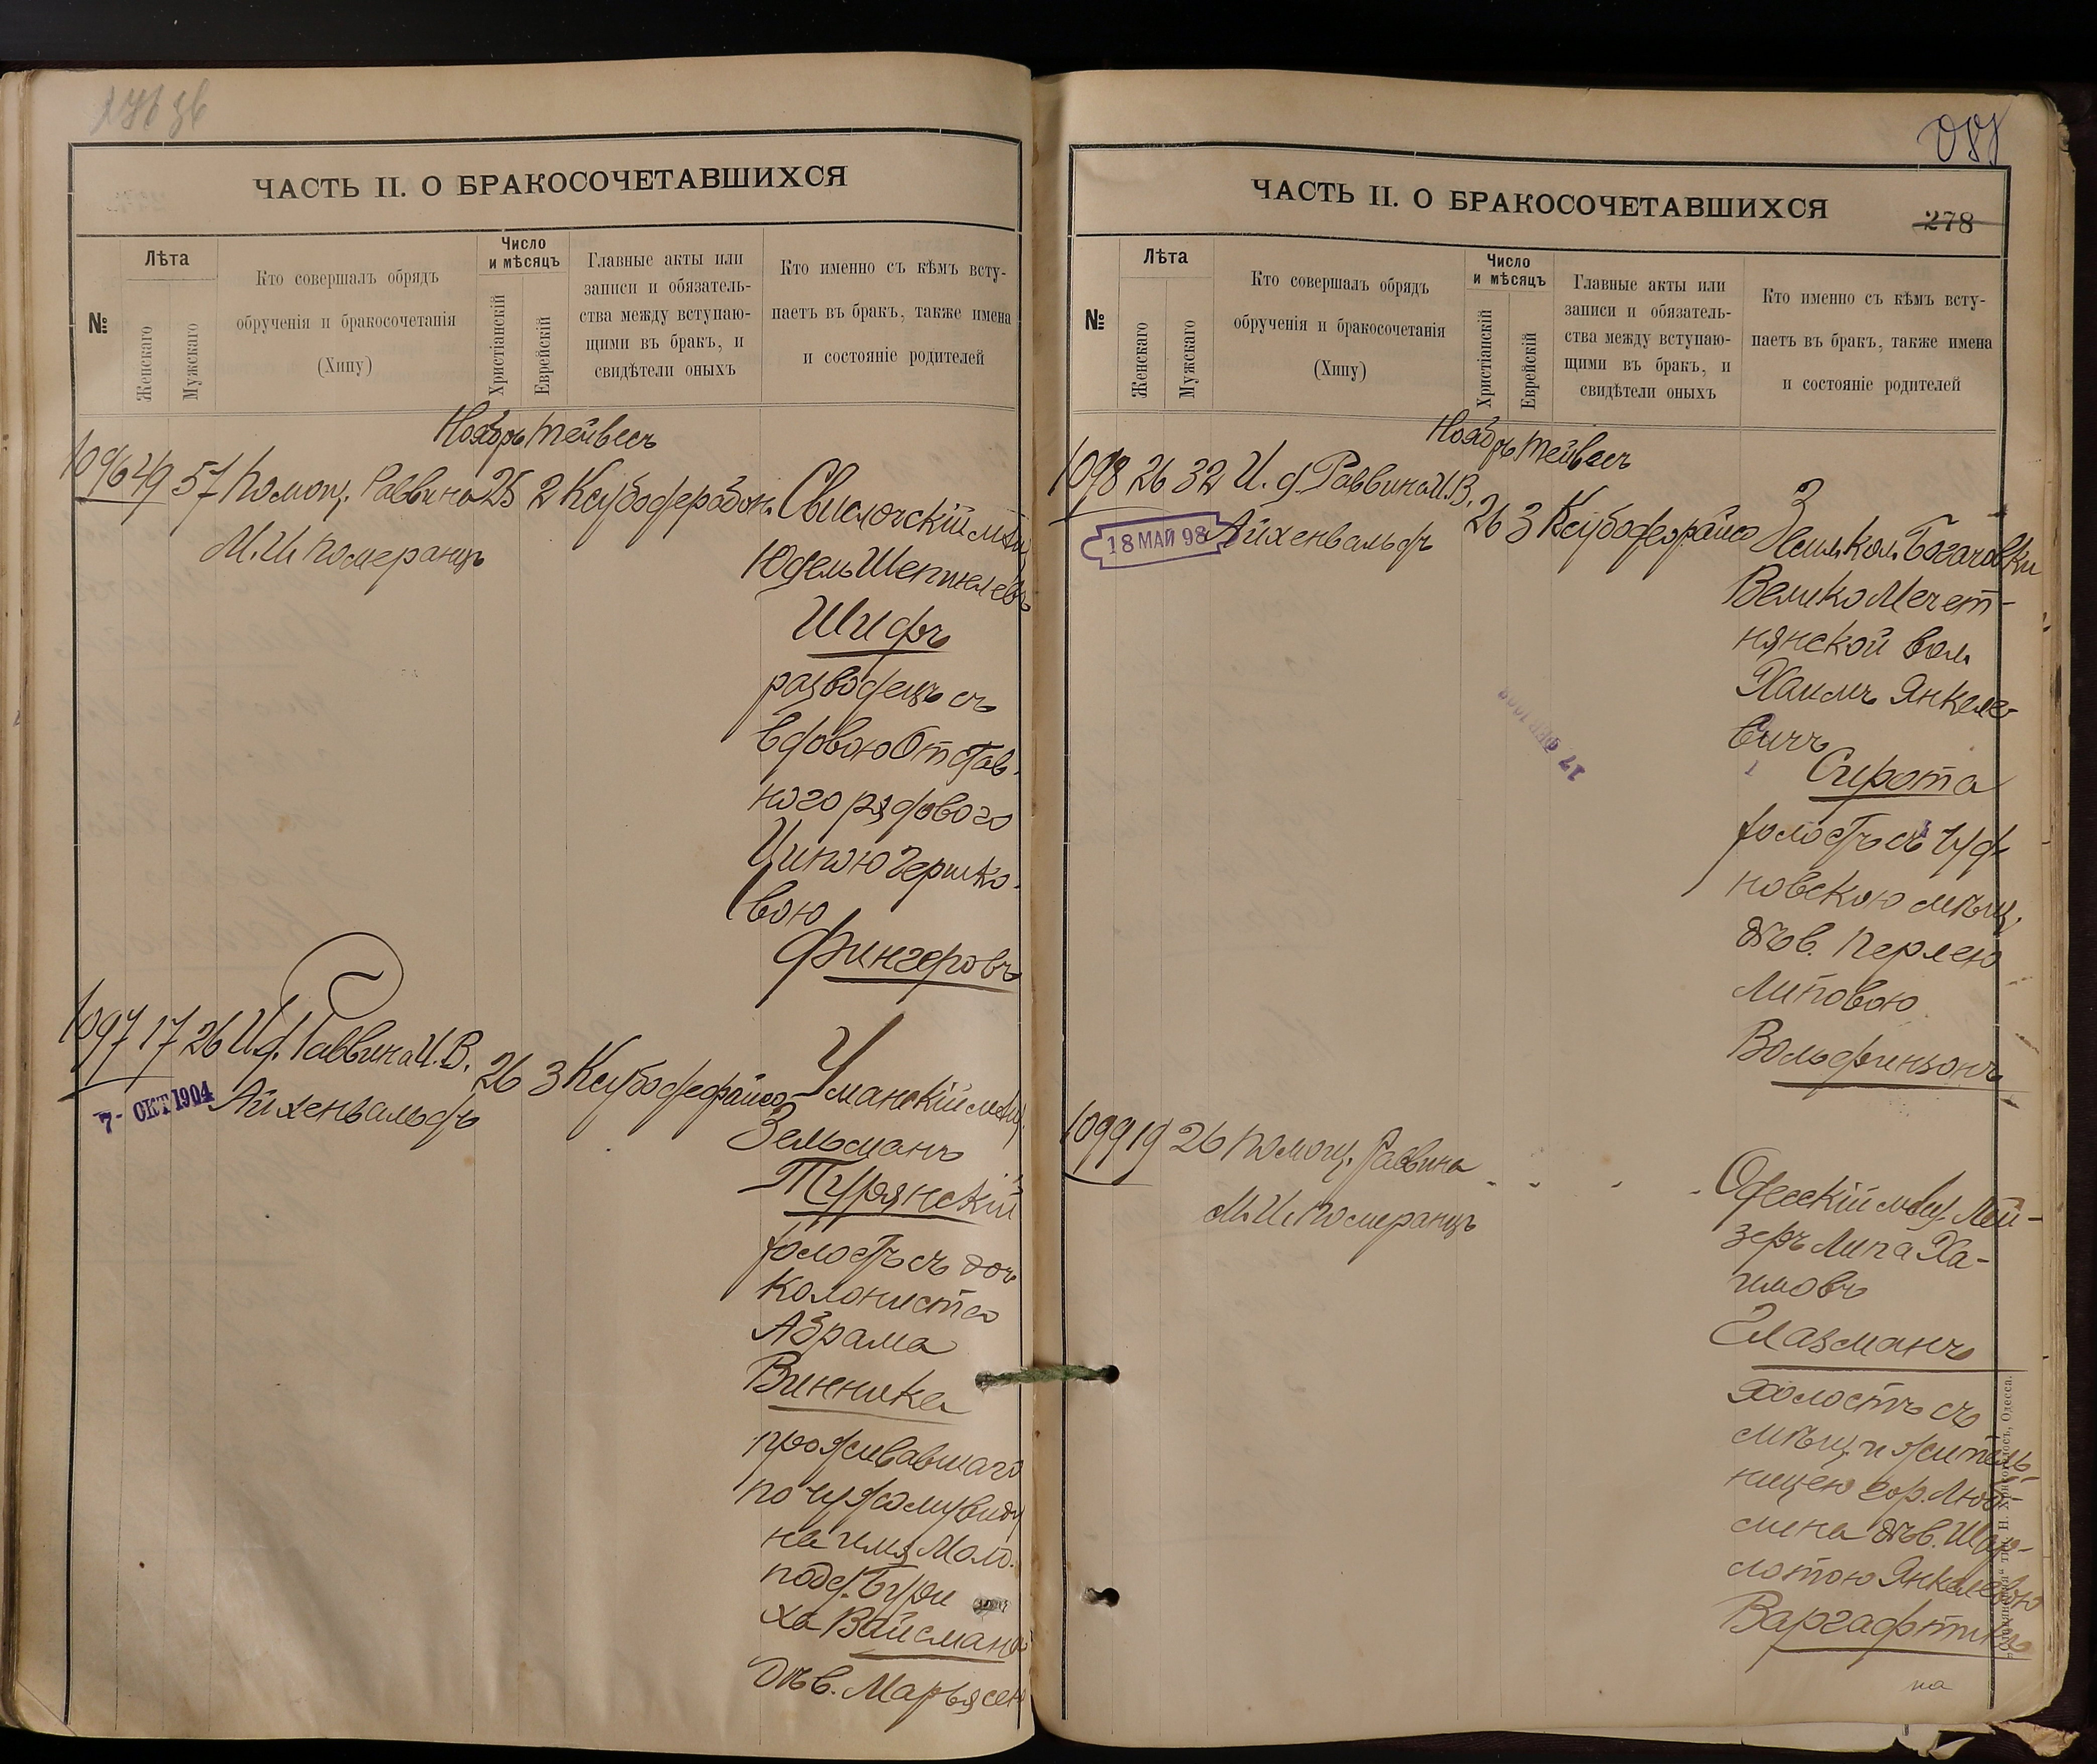 ЧАСТЬ II. О БРАКОСОЧЕТАВШИХСЯ
№
Лѣта
Женскаго
Мужскаго
Кто совершалъ обрядъ
обрученія и бракосочетанія
(Хипу)
Число
и мѣсяцъ
Христіанскій
Еврейскій
Главные акты или
записи и обязатель-
ства между вступаю-
щими въ бракъ, и
свидѣтели оныхъ
Кто именно съ кѣмъ всту-
паетъ въ бракъ, также имена
и состояніе родителей
Ноябрь Тейвесъ
1096 49 57 Помощ. Раввина 25 2
М. И. Померанцъ
Свислочскій мѣщ.
Юдель Шепшелевъ
Шифъ
разводецъ съ
вдовою Отстав-
ного рядового
Ципою Гершко-
вою
Фингеровъ
1097 17 26 И. д. Раввина И. В. 26 3
Айхенвальдъ
7- ОКТ 1904
Уманскій мѣщ.
Зельманъ
Турянскій
холостъ съ доч
колониста
Абрама
Винника
проживавшаго
по чужому виду
на имя Мало.
подс. Бури
ха Вайсмана
дѣв. Марьясею
ЧАСТЬ II. О БРАКОСОЧЕТАВШИХСЯ
278
№
Лѣта
Женскаго
Мужскаго
Кто совершалъ обрядъ
обрученія и бракосочетанія
(Хипу)
Число
и мѣсяцъ
Христіанскій
Еврейскій
Главные акты или
записи и обязатель-
ства между вступаю-
щими въ бракъ, и
свидѣтели оныхъ
Кто именно съ кѣмъ всту-
паетъ въ бракъ, также имена
и состояніе родителей
Ноябрь Тейвесъ
1098 26 32 И. д. Раввина И. В. 26 3
Айхенвальдъ
18 МАЙ 98
Земл. кол. Богачовки
Велико Мечет-
нянской вол
Хаимъ Янкеле-
вичъ
Сирота
холостъ съ Чуд-
новскою мѣщ.
дѣв. Перлею
Липовою
Вольфинзонъ
1099 19 26 Помощ. Раввина " " " "
М. И. Померанцъ
Одесскій мѣщ. Лей-
зеръ Липа Ха-
имовъ
Глазманъ
холостъ съ
мѣщ. и житель-
ницею гор. Люб-
лина дѣв. Шар-
лотою Янкелевою
Варгафтикъ
на